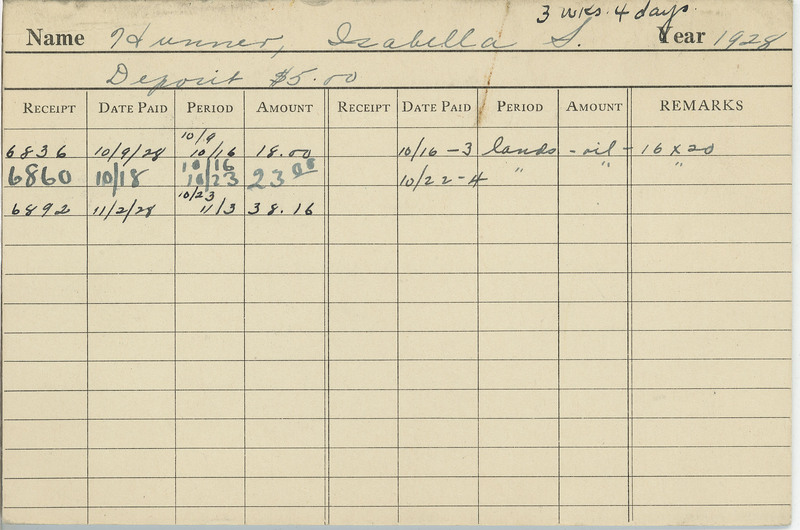 3 wks. 4 days.
Name Hunner, Isabella S. Year 1928
Deposit $5.00
RECEIPT DATE PAID PERIOD AMOUNT RECEIPT DATE PAID PERIOD AMOUNT REMARKS
10/9
6836 10/9/28 10/16 18.00 10/16 - 3 lands - oil - 16 x 20
10/16
6860 10/18 10/23 23.00 10/22 - 4 " " "
10/23
6892 11/2/28 11/3 38.16